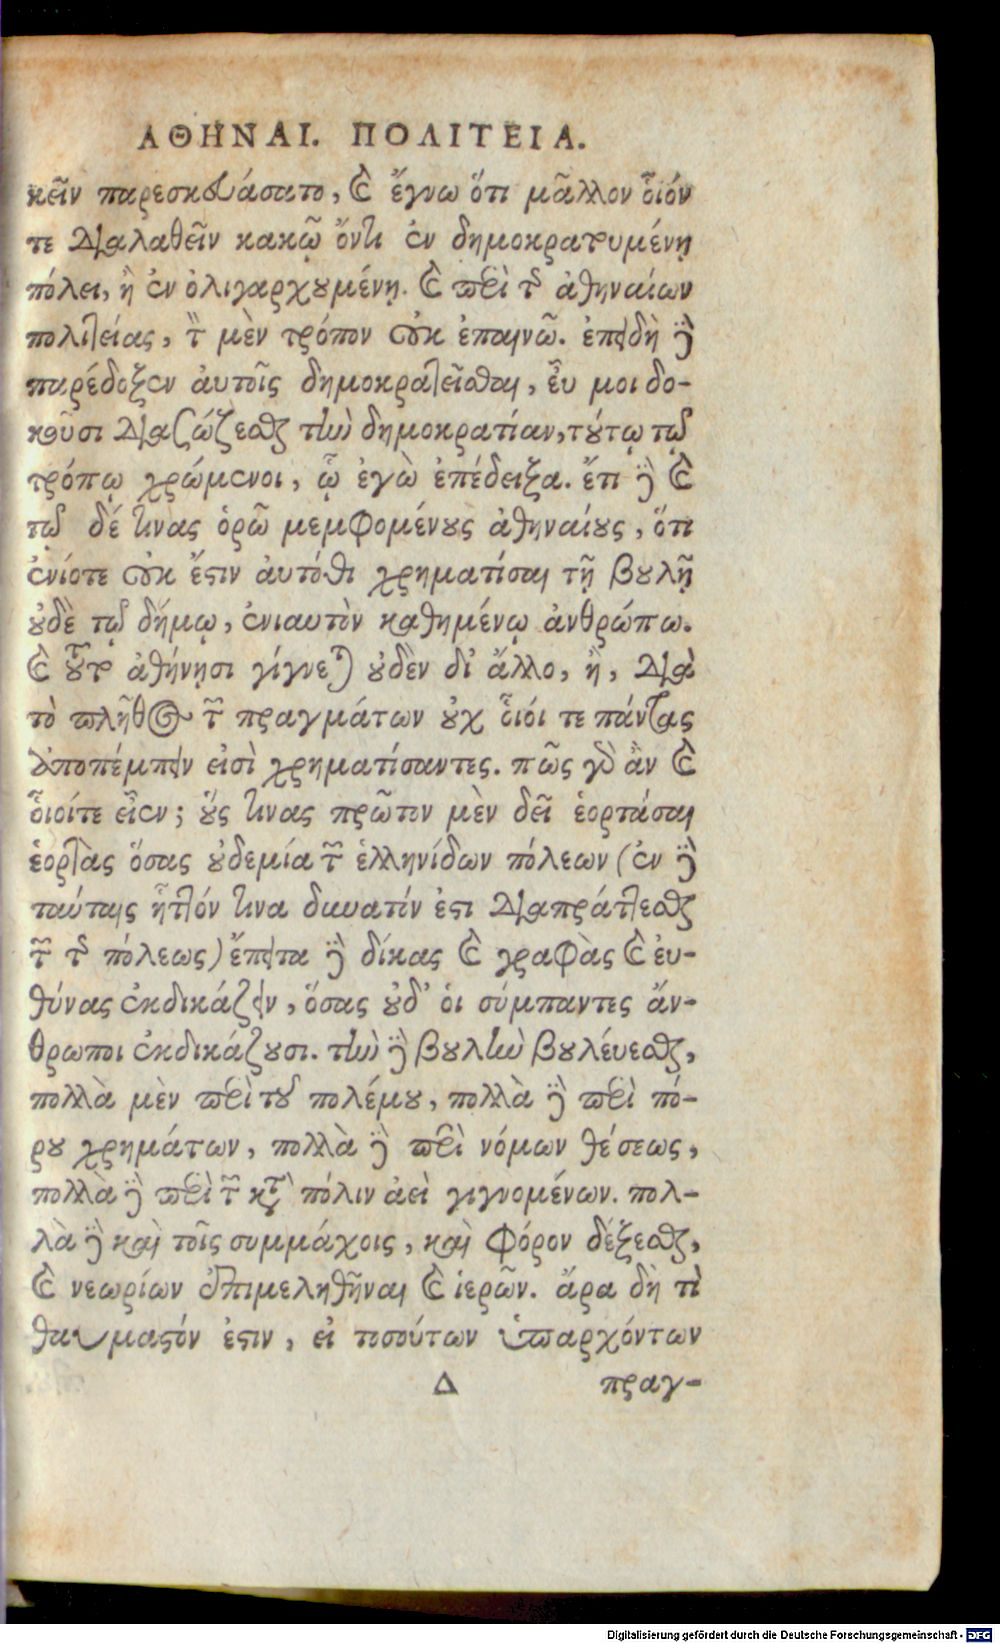 ΑΘΗΝΑΙ. ΠΟΛΙΤΕΙΑ.
κεῖν παρεσκευάσατο, καὶ ἔγνω ὅτι μᾶλλον οἷόν
τε διαλαθεῖν κακῷ ὄντι ἐν δημοκρατουμένῃ
πόλει, ἢ ἐν ὀλιγαρχουμένῃ. καὶ περὶ τῆς ἀθηναίων
πολιτείας, τὸν μὲν τρόπον οὐκ ἐπαινῶ. ἐπειδὴ δὲ
παρέδοξεν αὐτοῖς δημοκρατεῖσθαι, εὖ μοι δο-
κοῦσι διασώζεσθαι τὴν δημοκρατίαν, τούτῳ τῷ
τρόπῳ χρώμενοι, ᾧ ἐγὼ ἐπέδειξα. ἔτι δὲ καὶ
τῷ δέ τινας ὁρῶ μεμφομένους ἀθηναίους, ὅτι
ἐνίοτε οὐκ ἔστιν αὐτόθι χρηματίσαι τῇ βουλῇ
οὐδὲ τῷ δήμῳ, ἐνιαυτὸν καθημένῳ ἀνθρώπω.
καὶ τοῦτο ἀθήνησι γίγνεται οὐδὲν δι' ἄλλο, ἢ, διὰ
τὸ πλῆθος τῶν πραγμάτων οὐχ οἷοί τε πάντας
ἀποπέμπειν εἰσὶ χρηματίσαντες. πῶς γὰρ ἂν καὶ
οἷοίτε εἶεν; οὕς τινας πρῶτον μὲν δεῖ ἑορτάσαι
ἑορτὰς ὅσας οὐδεμία τῶν ἑλληνίδων πόλεων (ἐν δὲ
ταύταις ἧττόν τινα δυνατόν ἐστι διαπράττεσθαι
τῶν τῆς πόλεως) ἔπειτα δὲ δίκας καὶ γραφὰς καὶ εὐ-
θύνας ἐκδικάζειν, ὅσας οὐδ' οἱ σύμπαντες ἄν-
θρωποι ἐκδικάζουσι. τὴν δὲ βουλὴν βουλέυεσθαι,
πολλὰ μὲν περὶ τοῦ πολέμου, πολλὰ δὲ περὶ πό-
ρου χρημάτων, πολλὰ δὲ περὶ νόμων θέσεως,
πολλὰ δὲ περὶ τῶν κατὰ πόλιν ἀεὶ γιγνομένων. πολ-
λὰ δὲ καὶ τοῖς συμμάχοις, καὶ φόρον δέξεσθαι,
καὶ νεωρίων ἐπιμεληθῆναι καὶ ἱερῶν. ἄρα δὴ τὶ
θαυμαστόν ἐστιν, εἰ τοσούτων ὑπαρχόντων
Δ πραγ-
Digitalisierung gefördert durch die Deutsche Forschungsgemeinschaft - DFG